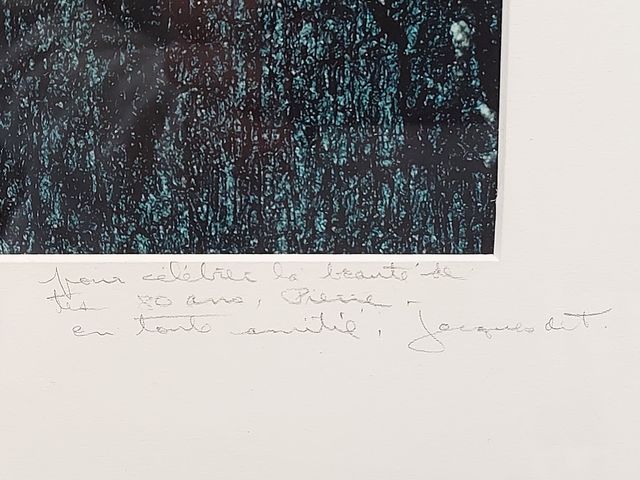 pour célébrer la beauté de
tes 20 ans, Pierre.
en toute amitié, Jacques